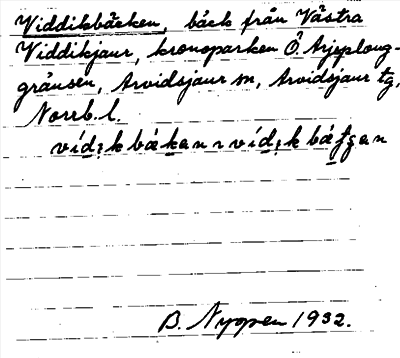 Viddikbäcken, bäck från Västra
Viddikjaur, kronoparken Ö. Arjeploug-
gränsen, Arvidsjaur sn, Arvidsjaur tg,
Norrb. l.
B. Nyppen 1932.